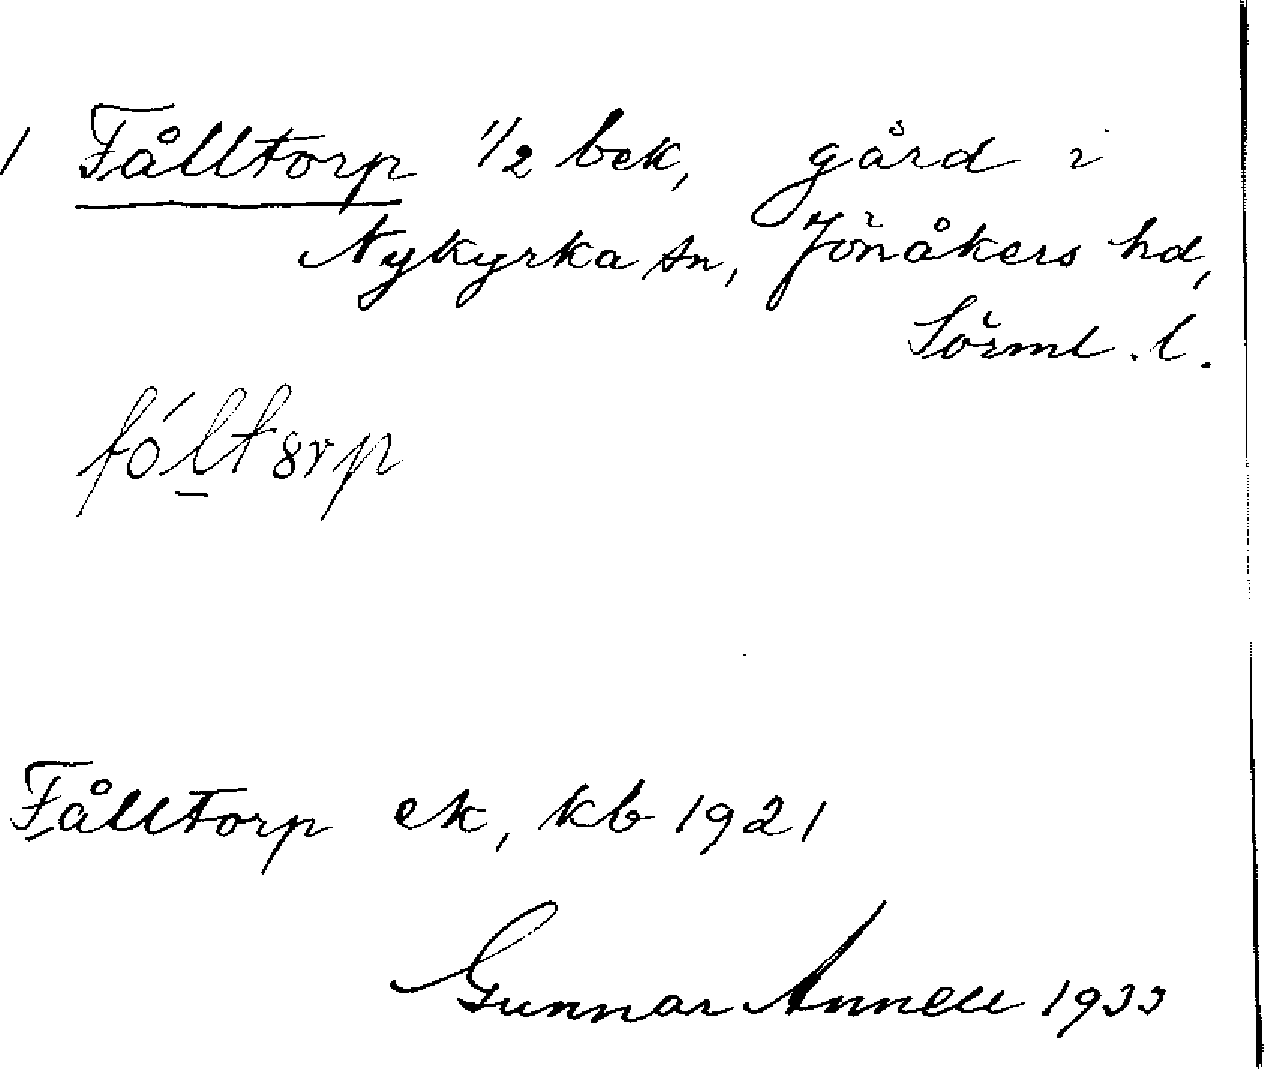 1 Fålltorp 1/2 bek, gård i
Nykyrka sn, Jönåkers hd,
Sörml. l.
fól̠t8rp
Fålltorp ek, kb 1921
Gunnar Annell 1933